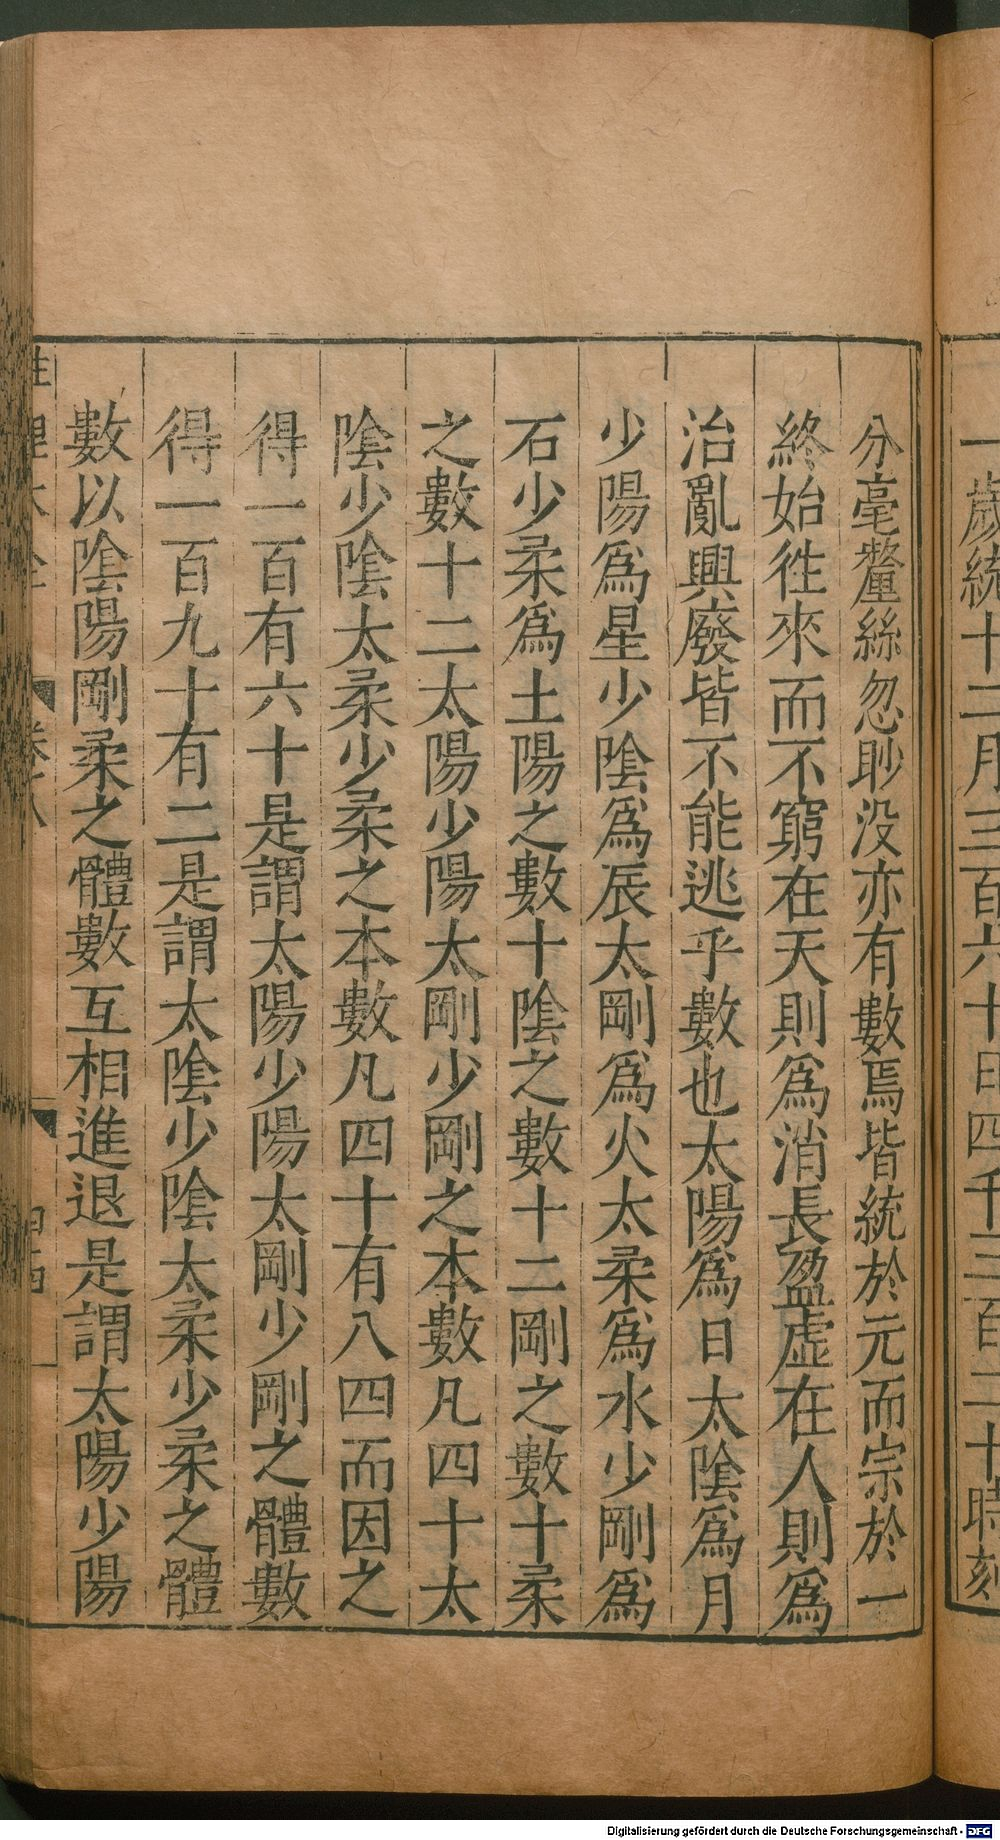 一歲統十二月三百六十日四千三百二十時刻
分毫釐絲忽眇没亦有數焉皆統於元而宗於一
終始徃來而不窮在天則爲消長盈虚在人則爲
治亂興廢皆不能逃乎數也太陽爲日太陰爲月
少陽爲星少陰爲辰太剛爲火太柔爲水少剛爲
石少柔爲土陽之數十陰之數十二剛之數十柔
之數十二太陽少陽太剛少剛之本數凡四十太
陰少陰太柔少柔之本數凡四十有八四而因之
得一百有六十是謂太陽少陽太剛少剛之體數
得一百九十有二是謂太陰少陰太柔少柔之體
數以陰陽剛柔之體數互相進退是謂太陽少陽
Digitalisierung gefördert durch die Deutsche Forschungsgemeinschaft - DFG